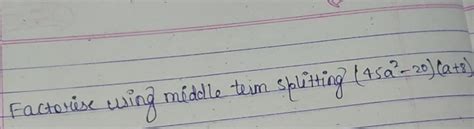 Factorise using middle term splitting (45a²-20)(a+8)